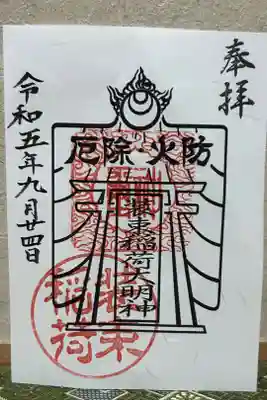 奉拝
防火・除厄
装束稲荷大明神
令和五年九月廿四日
装束
稲荷